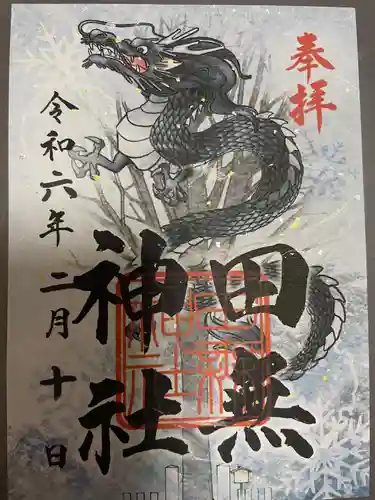 奉拝
田無
神社
令和六年二月十日